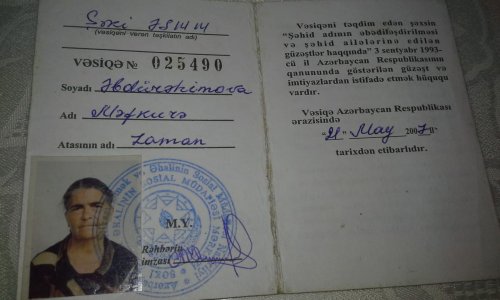 Şəki ƏSMM
(vəsiqəni verən təşkilatın adı)
VƏSİQƏ № 025490
Soyadı Əbdürəhimova
Adı Məfkurə
Atasının adı Zaman
M.Y.
Rəhbərin
imzası
Vəsiqəni təqdim edən şəxsin
"Şəhid adının əbədiləşdirilməsi
və şəhid ailələrinə edilən
güzəştlər haqqında" 3 sentyabr 1993-
cü il Azərbaycan Respublikasının
qanununda göstərilən güzəşt və
imtiyazlardan istifadə etmək hüququ
vardır.
Vəsiqə Azərbaycan Respublikası
ərazisində
"21" May 2007 il
tarixdən etibarlıdır.